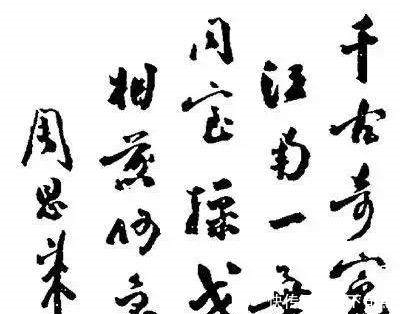 千古奇冤
江南一葉
同室操戈
相煎何急
周恩来